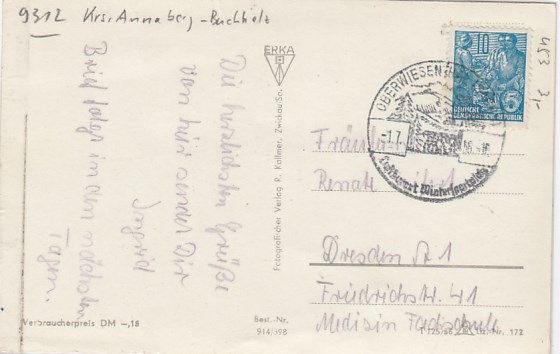 9312 Krs. Annaberg-Buchholz
Die herzlichsten Grüße
von hier sendet Dir
Ingrid
Brief folgt in den nächsten
Tagen.
Verbraucherpreis DM -,15
ERKA
Fotografischer Verlag R. Kallmer, Zwickau/Sa.
Best.-Nr.
914/358
10
5
DEUTSCHE
DEMOKRATISCHE REPUBLIK
OBERWIESEN
-1.7.
56.-16
Luftkurort Wintersportplatz
453
3,-
Fräulein
Renate
Dresden A 1
Friedrichstr. 41
Medizin Fachschule
Nr. 172